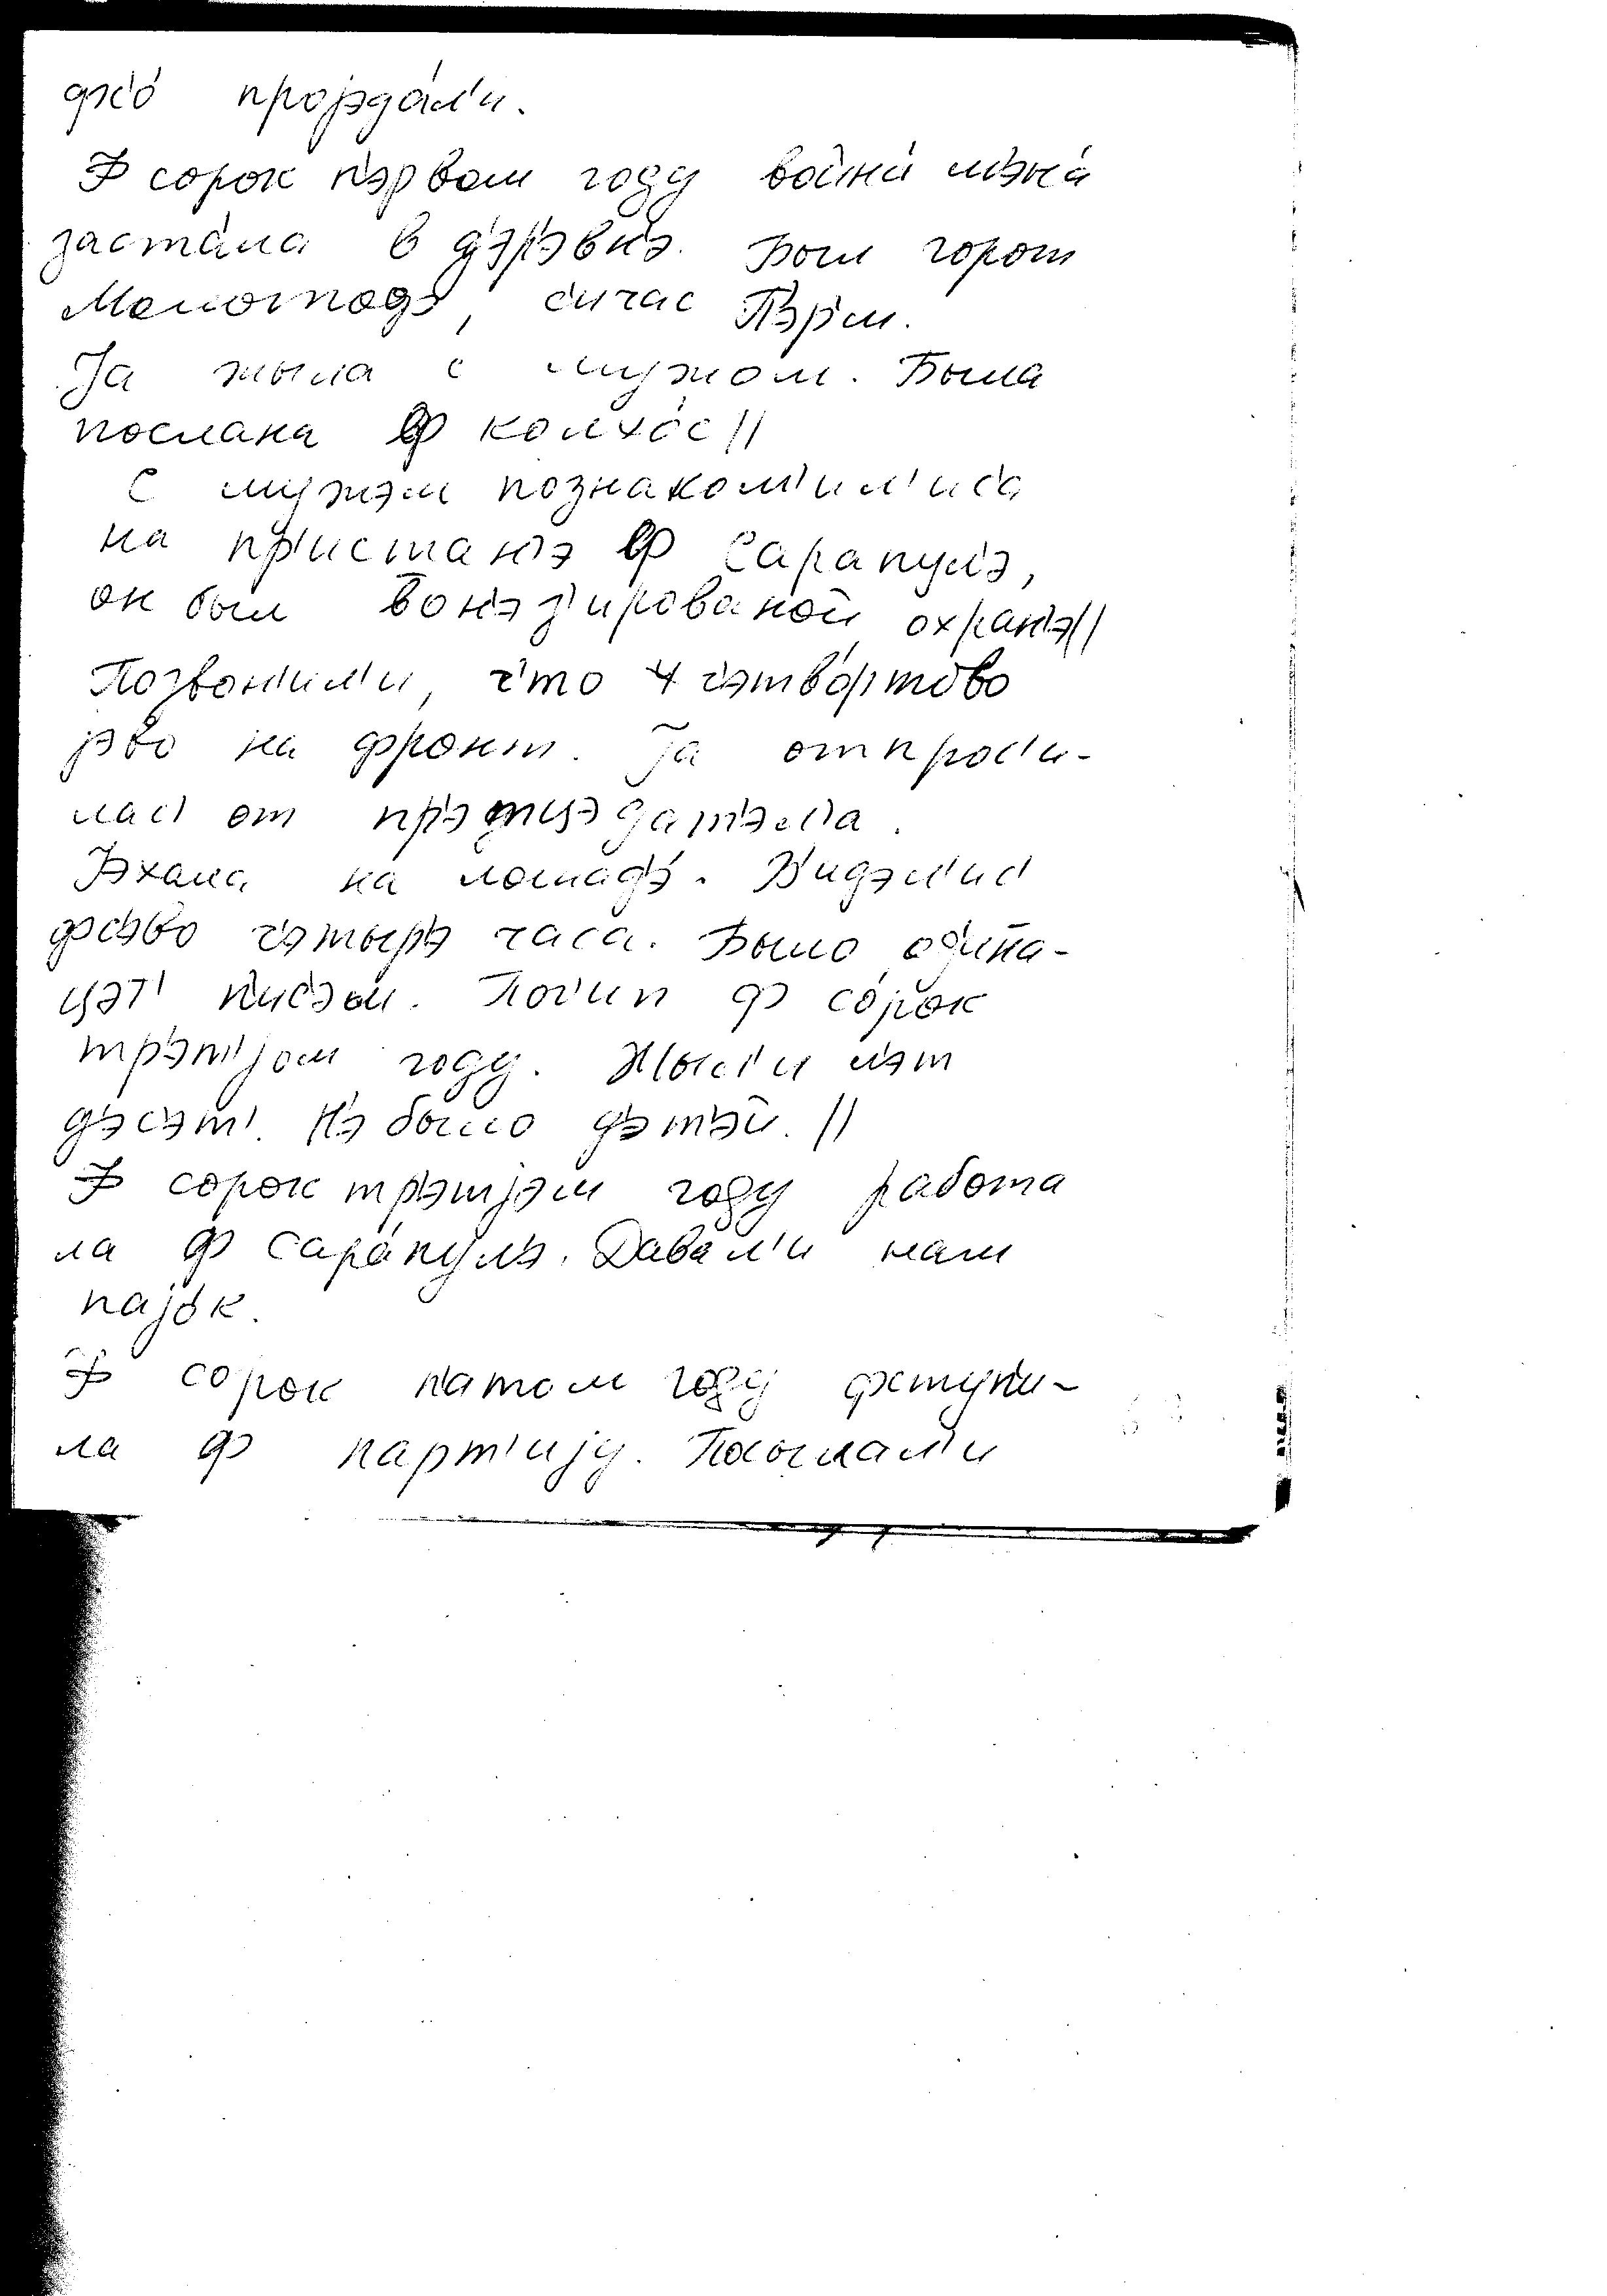 фс'о́ пројэда́л'и.
Ф сорок п'э́рвом году война́ м'эн'а́
заста́ла в д'эр'э́вн'э. Был горот
Молотоф, с'ичас П'эр'м.
Ја жыла с мужом. Была
послана ф колхо́с //
С мужэм познаком'ил'ис'а
на пр'истан'э ф Сарапул'э,
он был во̄н'эз'ированой охран'э //
Позвон'ил'и, ч'то ч'этв'о́ртово
јэво на фронт. Ја отпрос'и-
лас' от пр'эцэдат'эл'а.
Јэхала на лошад'э́. В'ид'эл'ис'
фс'эво ч'этыр'э часа. Было од'ина-
цэт' п'ис'эм. Пог'ип ф со́рок
тр'эт'јом году. Жыл'и л'эт
д'эс'эт'. Н'э было д'этэй. //
Ф сорок тр'этјэм году работа
ла ф Сара́пул'э. Давал'и нам
пајо́к.
Ф сорок п'атом году фступ'и-
ла ф парт'ију. Посылал'и